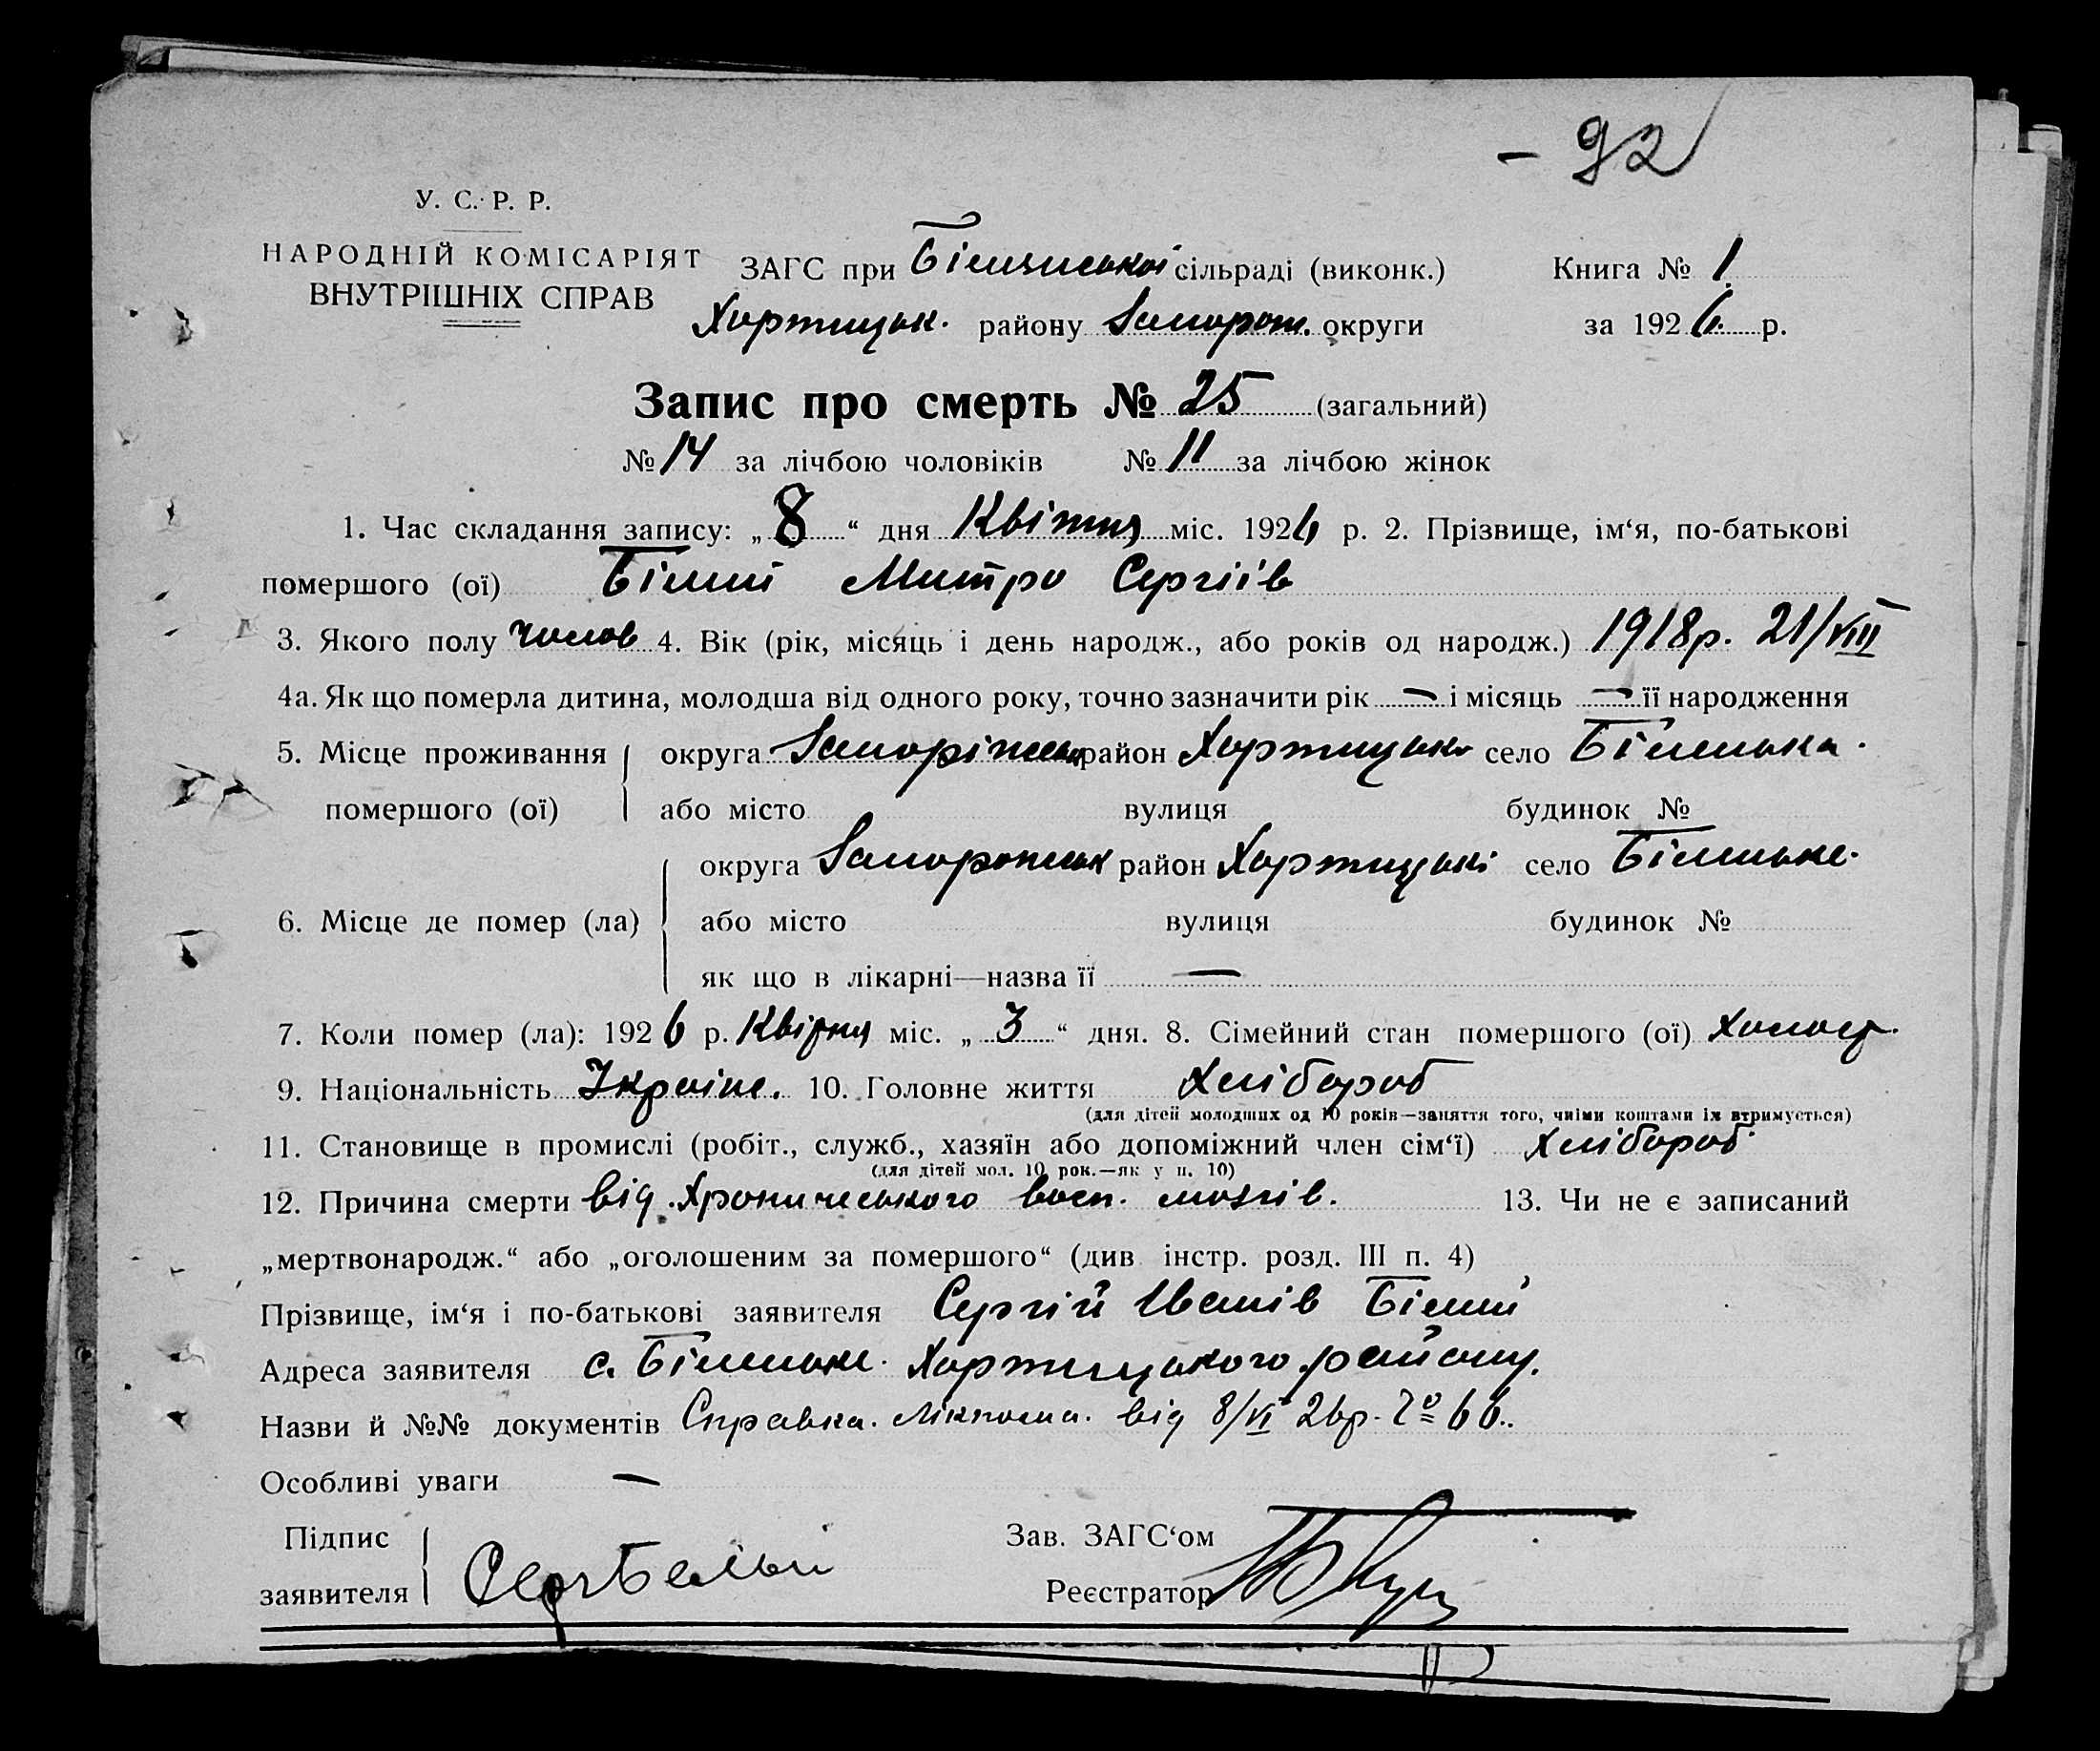 – 92
У. С. Р. Р.
НАРОДНІЙ КОМІСАРІЯТ
ВНУТРІШНІХ СПРАВ
ЗАГС при Біленській сільраді (виконк.) Книга № 1
Хортицьк. району Запорож. округи за 1926 р.
Запис про смерть № 25 (загальний)
№ 14 за лічбою чоловіків № 11 за лічбою жінок
1. Час складання запису: „ 8 “ дня Квітня міс. 1926 р. 2. Прізвище, ім‘я, по-батькові
помершого (ої) Білий Митро Сергіїв
3. Якого полу чолов 4. Вік (рік, місяць і день народж., або років од народж.) 1918р. 21/VIII
4а. Як що померла дитина, молодша від одного року, точно зазначити рік — і місяць — її народження
5. Місце проживання округа Запоріжська район Хортицьк село Біленька.
помершого (ої) або місто вулиця будинок №
округа Запорожськ район Хортицькі село Біленьке.
6. Місце де помер (ла) або місто вулиця будинок №
як що в лікарні—назва її —
7. Коли помер (ла): 1926 р. Квітня міс. „ 3 “ дня. 8. Сімейний стан помершого (ої) холост.
9. Національність Україн. 10. Головне життя Хлібороб
(для дітей молодших од 10 років—заняття того, чиїми коштами їх втримується)
11. Становище в промислі (робіт., служб., хазяїн або допоміжний член сім‘ї) Хлібороб
(для дітей мол. 10 рок.—як у п. 10)
12. Причина смерти від Хроничеського восп. мозгів. 13. Чи не є записаний
„мертвонародж.“ або „оголошеним за помершого“ (див. інстр. розд. III п. 4)
Прізвище, ім‘я і по-батькові заявителя Сергій Іванів Білий
Адреса заявителя с. Біленьке Хортицького району.
Назви й №№ документів Справка. Лікпома. від 8/VI 26р. 66.
Особливі уваги —
Підпис Зав. ЗАГС‘ом
заявителя Серг Белый Реєстратор